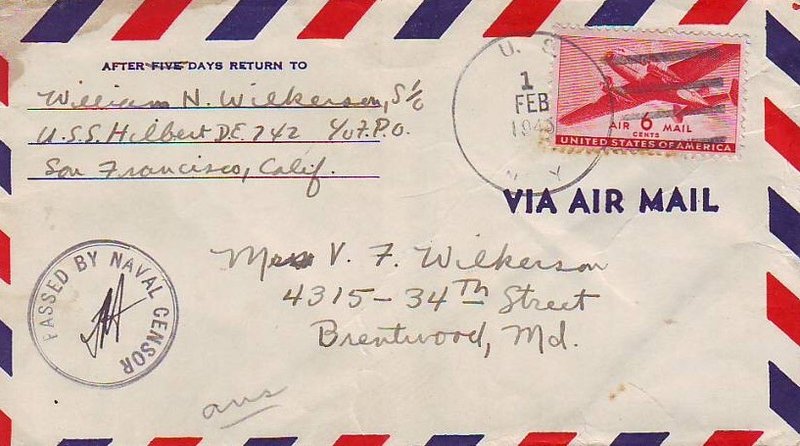 AFTER FIVE DAYS RETURN TO
William N. Wilkerson, S 1/c
U.S.S. Hilbert D.E. 742 % F.P.O.
San Francisco, Calif.
U. S.
1
FEB
1945
N. Y.
AIR 6 MAIL
CENTS
UNITED STATES OF AMERICA
VIA AIR MAIL
PASSED BY NAVAL CENSOR
Mrs V. F. Wilkerson
4315-34TH Street
Brentwood, Md.
ans